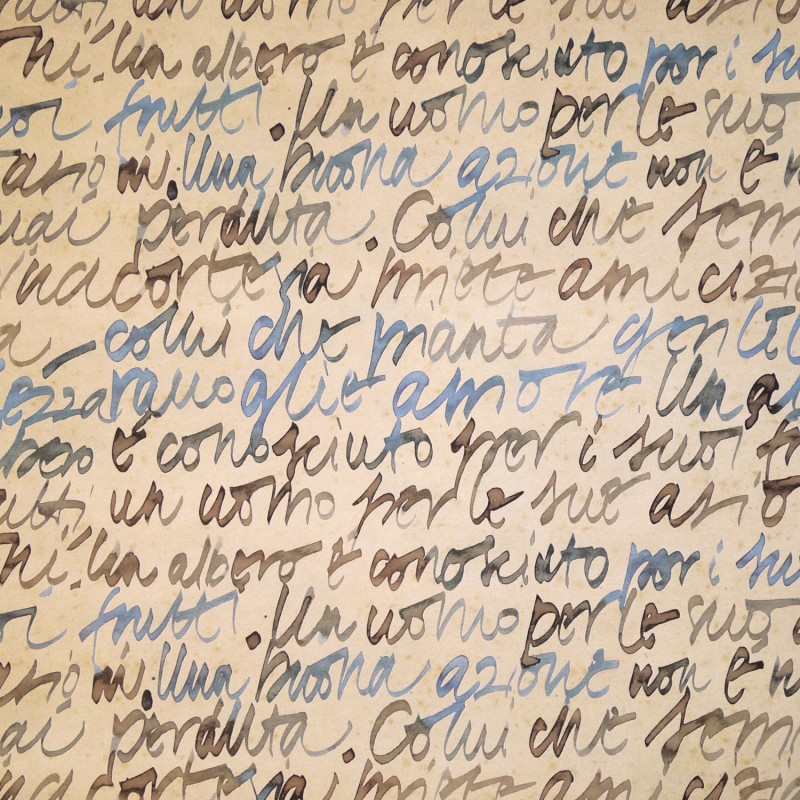 frutti un uomo per le sue azio
ni. Un albero è conosciuto per i su
oi frutti. Un uomo per le sue
azioni. Una buona azione non è m
ai perduta. Colui che sem
ina cortesia miete amicizi
a - colui che pianta gentil
ezza raccoglie amore. Un al
bero è conosciuto per i suoi fr
utti un uomo per le sue azio
ni. Un albero è conosciuto per i su
oi frutti. Un uomo per le sue
azioni. Una buona azione non è m
ai perduta. Colui che sem
ina cortesia miete amicizi